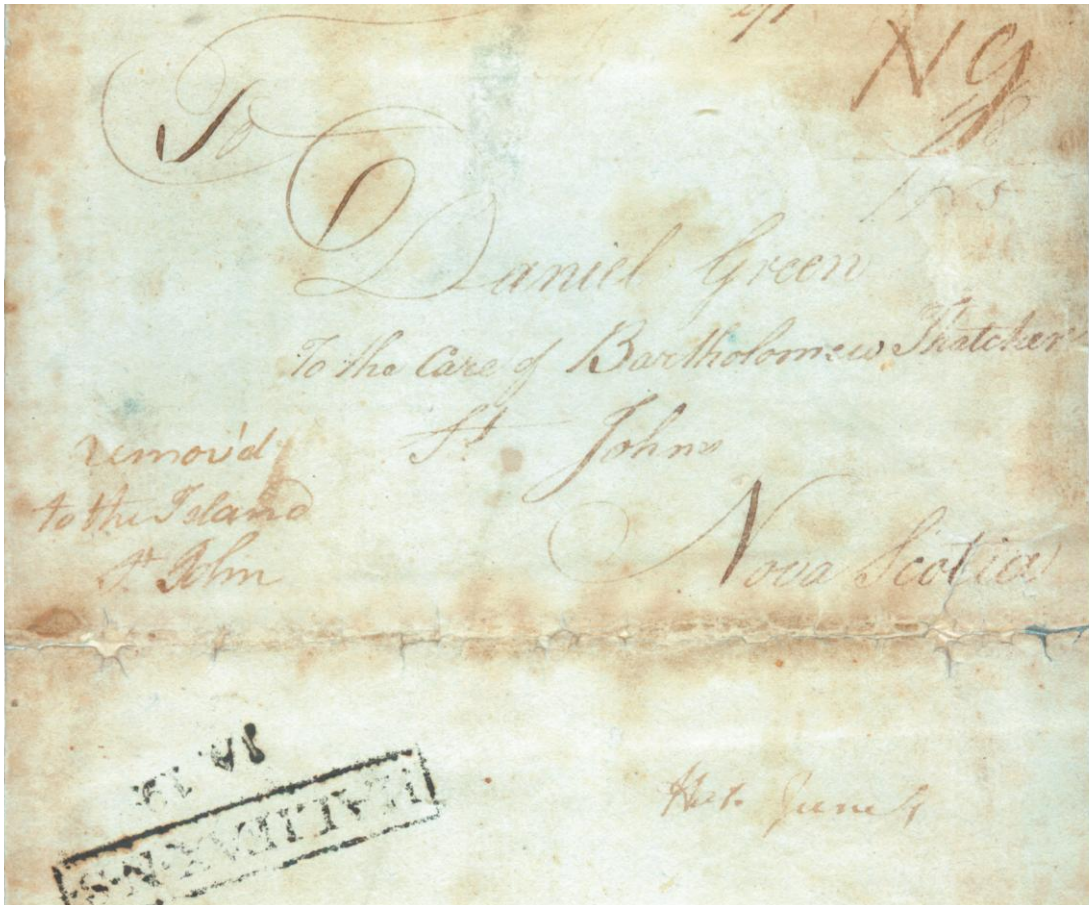 N 9
To
Daniel Green
To the Care of Bartholomew Thatcher
St. Johns
Nova Scotia
remov'd
to the Island
St John
HALIFAX·N·S
June